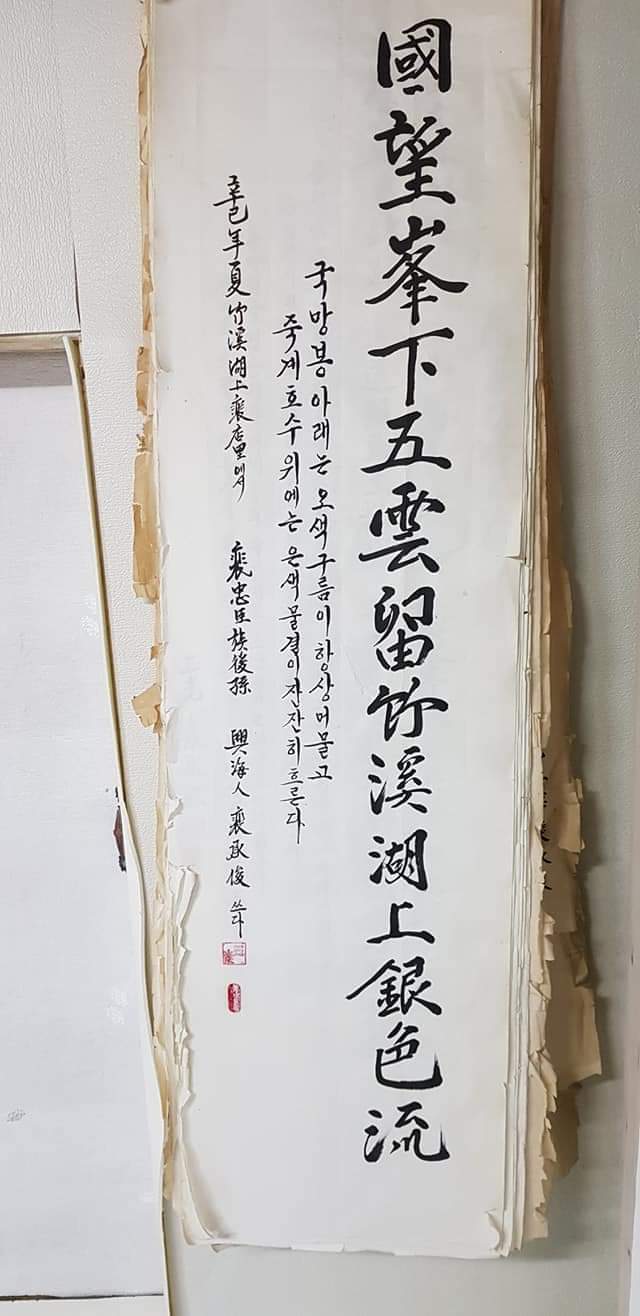 國望峯下五雲留竹溪湖上銀色流
국망봉 아래는 오색구름이 항상 머물고
죽계호수 위에는 은색물결이 잔잔히 흐른다
辛巳年 夏 竹溪湖上 裵店里에서 裵忠臣族後孫 興海人 裵承俊 쓰다